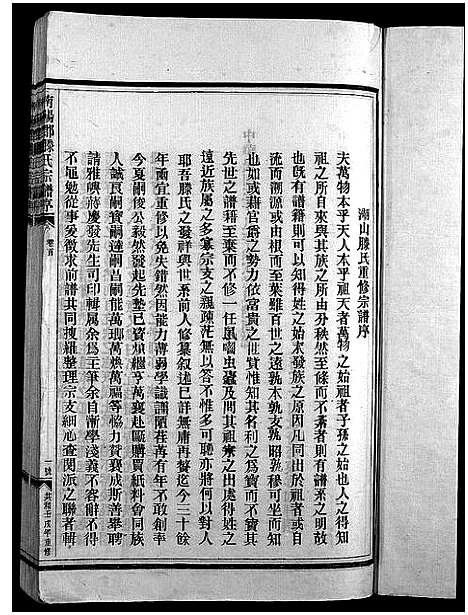 湖山滕氏重修宗譜序
夫萬物本乎天人本乎祖天者萬物之始祖者子孫之始也人之得知
祖之所自來與其族之所由分秩然至條而不紊者則有譜系之明故
也既有譜籍則可以知得姓之始末發族之原因凡同出於祖者或自
流而溯源或由根而至葉雖百世之遠孰本孰支孰昭孰穆可坐而知
也如或藉官爵之勢力依富貴之世貲惟其名利之為寶而不寶其
先世之譜籍至棄而不修一任風囓虫蠹及問其祖宗之出處得姓之
遠近族屬之多寡宗支之親疎茫無以答不惟多可恥亦將何以對人
耶吾滕氏之發祥與世系前人修纂叙述已詳無庸再贅迄今三十餘
年而宜重修以免失錯然因能力薄弱學識謭陋荏苒有年不敢創幸
今夏嗣俊公毅然發起先墊已貲煩繼亨萬襄赴甌購買紙料會同族
人誠良嗣寶嗣達嗣昌嗣能萬瑚萬煥萬福等協力贊襄成斯善舉聘
請雅嶼蔣慶發先生司印輯属余為主筆余自漸學淺義不容辭不得
不黽勉從事爰徵求前譜共同搜紐整理宗支細心查閱派之聯者輯
南陽郡滕氏宗譜序
卷首
一號
共和壬戌年重修